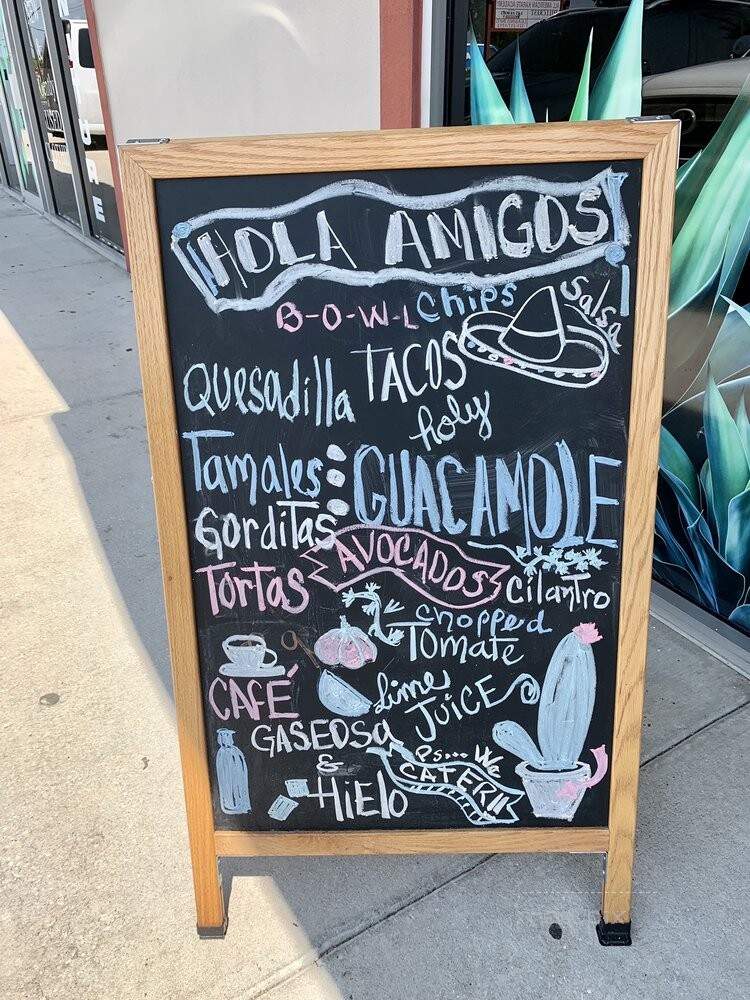 HOLA AMIGOS!
B-O-W-L chips salsa
Quesadilla TACOS
holy
Tamales GUACAMOLE
Gorditas
AVOCADOS
Tortas cilantro
chopped
TOMATE
CAFÉ lime JUICE
GASEOSA
& Hielo
Ps... We
CATER!!